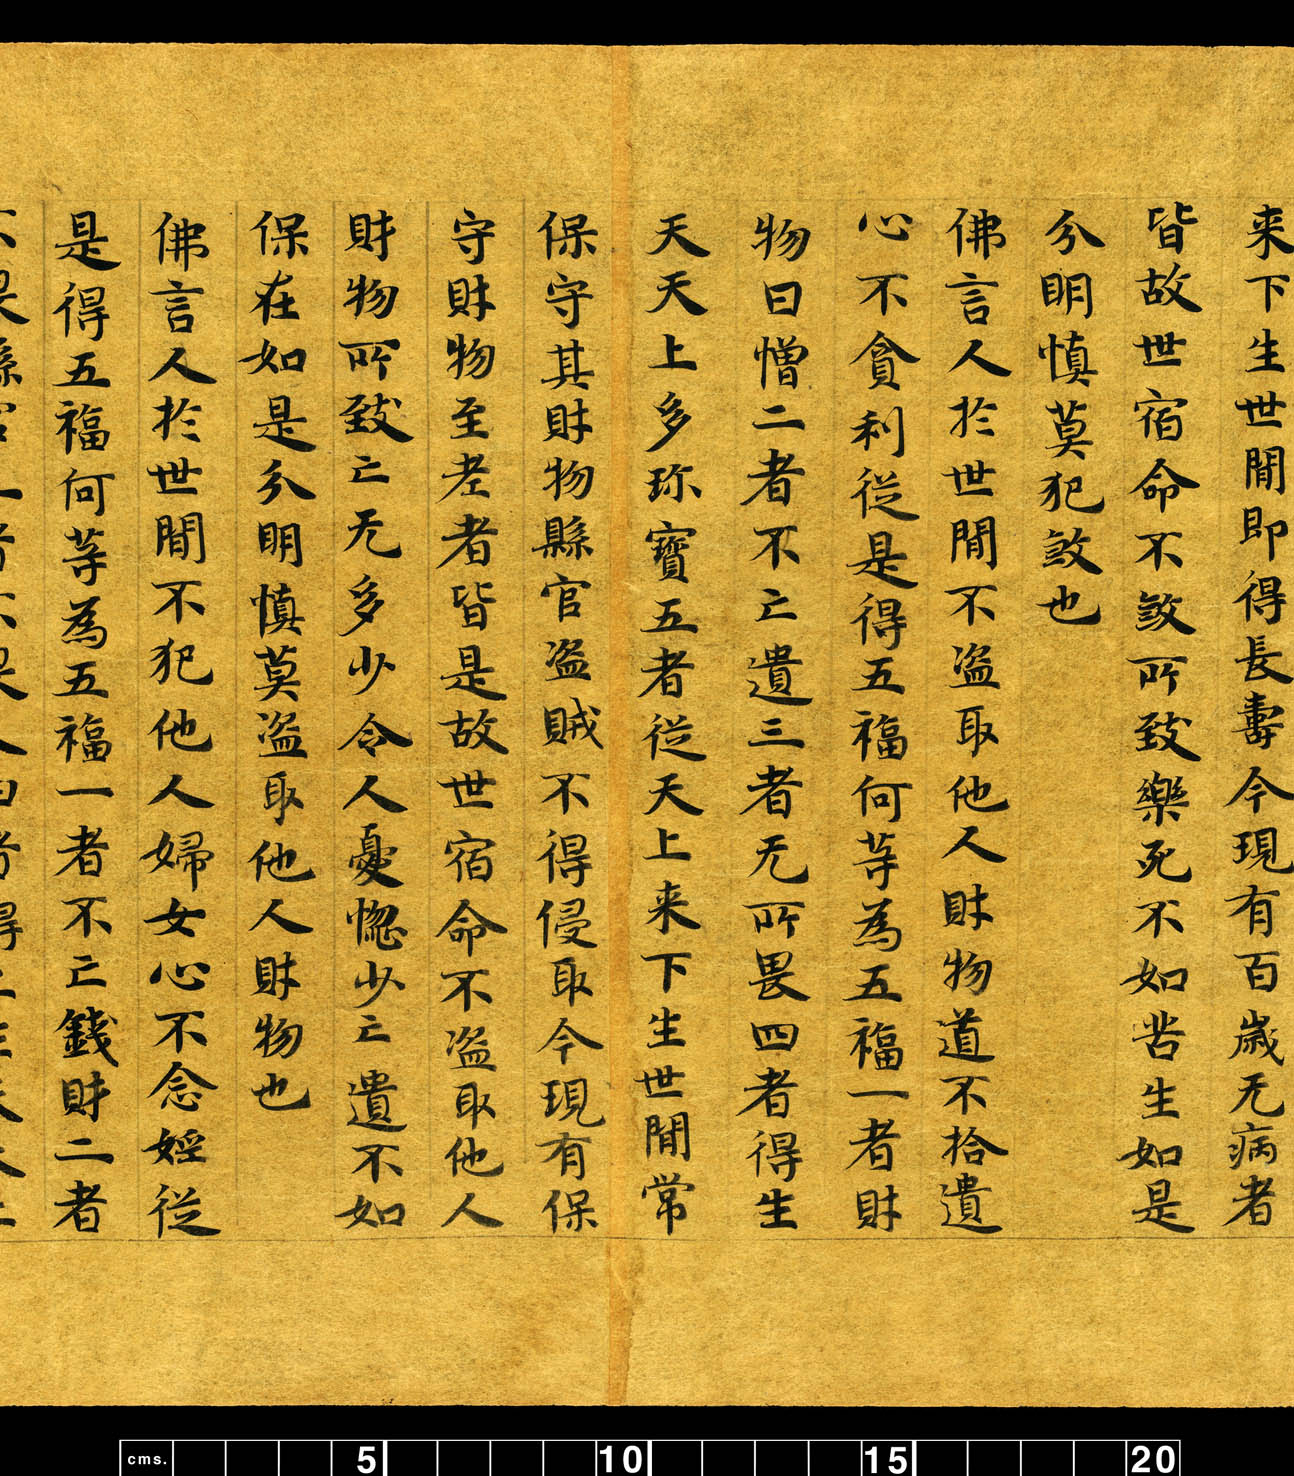 来下生世閒即得長壽今現有百歲无病者
皆故世宿命不煞所致樂死不如苦生如是
分明慎莫犯煞也
佛言人於世閒不盜取他人財物道不拾遺
心不貪利從是得五福何等為五福一者財
物日憎二者不亡遺三者无所畏四者得生
天天上多珎寶五者從天上来下生世閒常
保守其財物縣官盜賊不得侵取今現有保
守財物至老者皆是故世宿命不盜取他人
財物所致亡无多少令人憂惱少亡遺不如
保在如是分明慎莫盜取他人財物也
佛言人於世閒不犯他人婦女心不念婬從
是得五福何等為五福一者不亡錢財二者
cms. 5 10 15 20